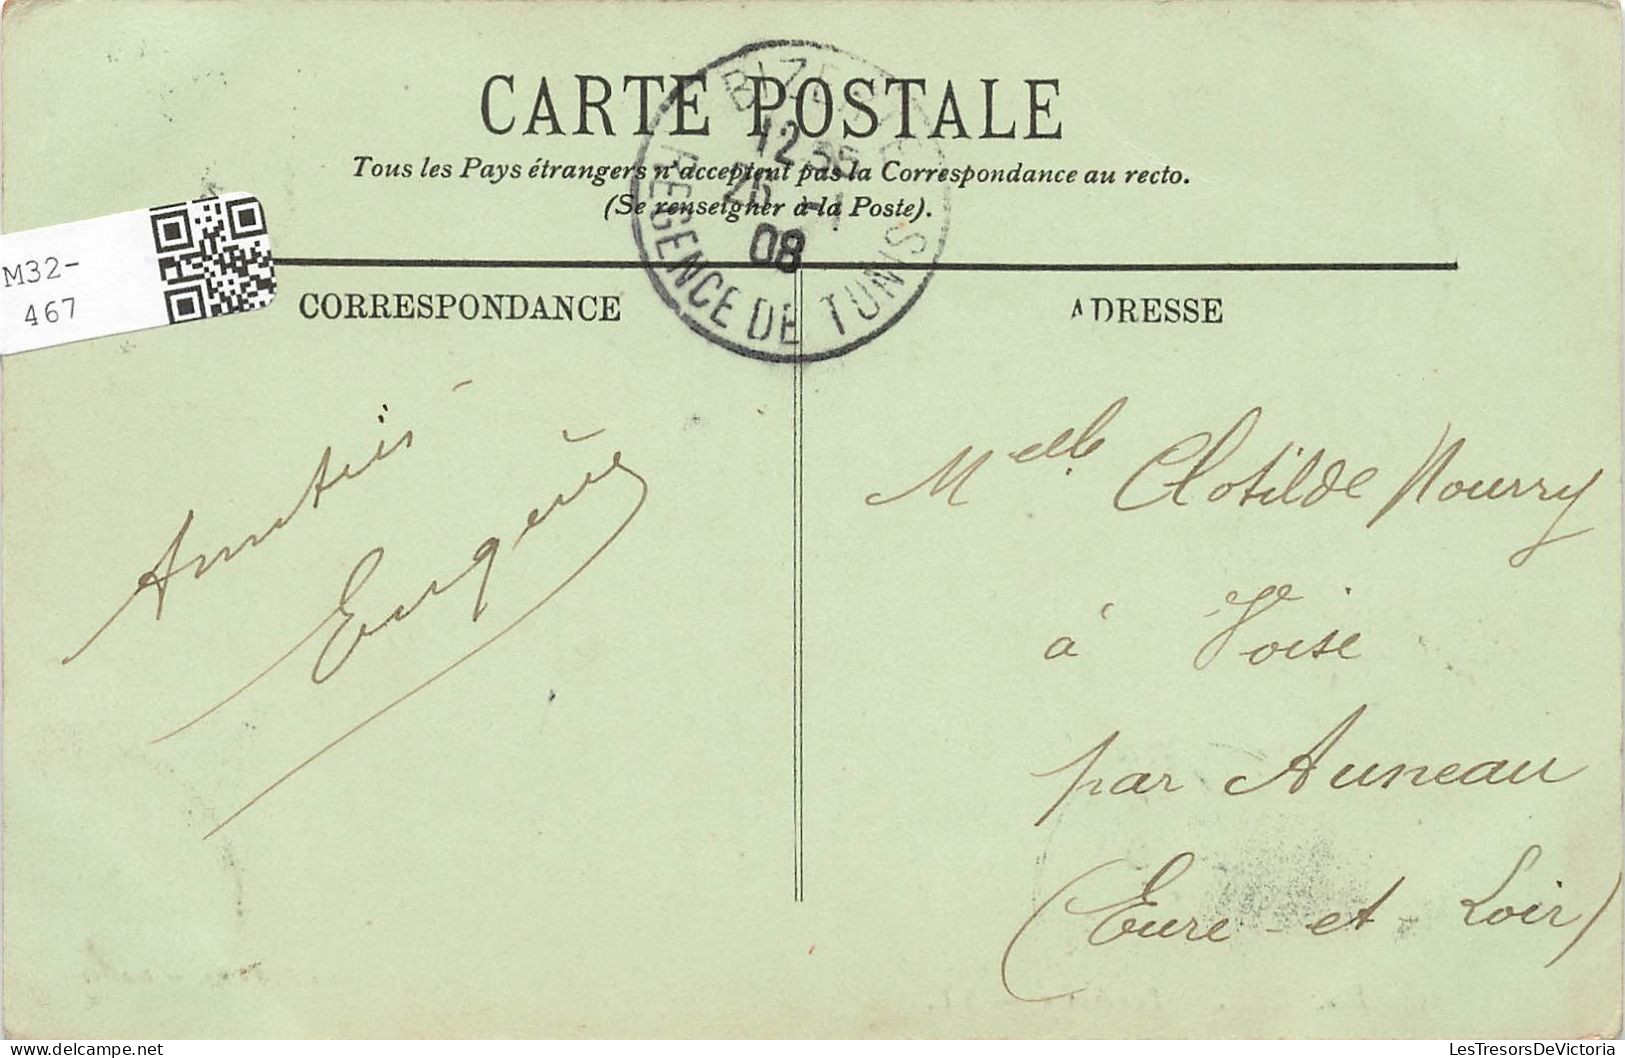 CARTE POSTALE
Tous les Pays étrangers n'acceptent pas la Correspondance au recto.
(Se renseigner à la Poste).
BIZERTE
12
26 -1
08
REGENCE DE TUNIS
M32-
467
CORRESPONDANCE
ADRESSE
Amitiés
Eugène
Melle Clotilde Nourry
à Voise
par Auneau
(Eure et Loir)
LesTresorsDeVictoria